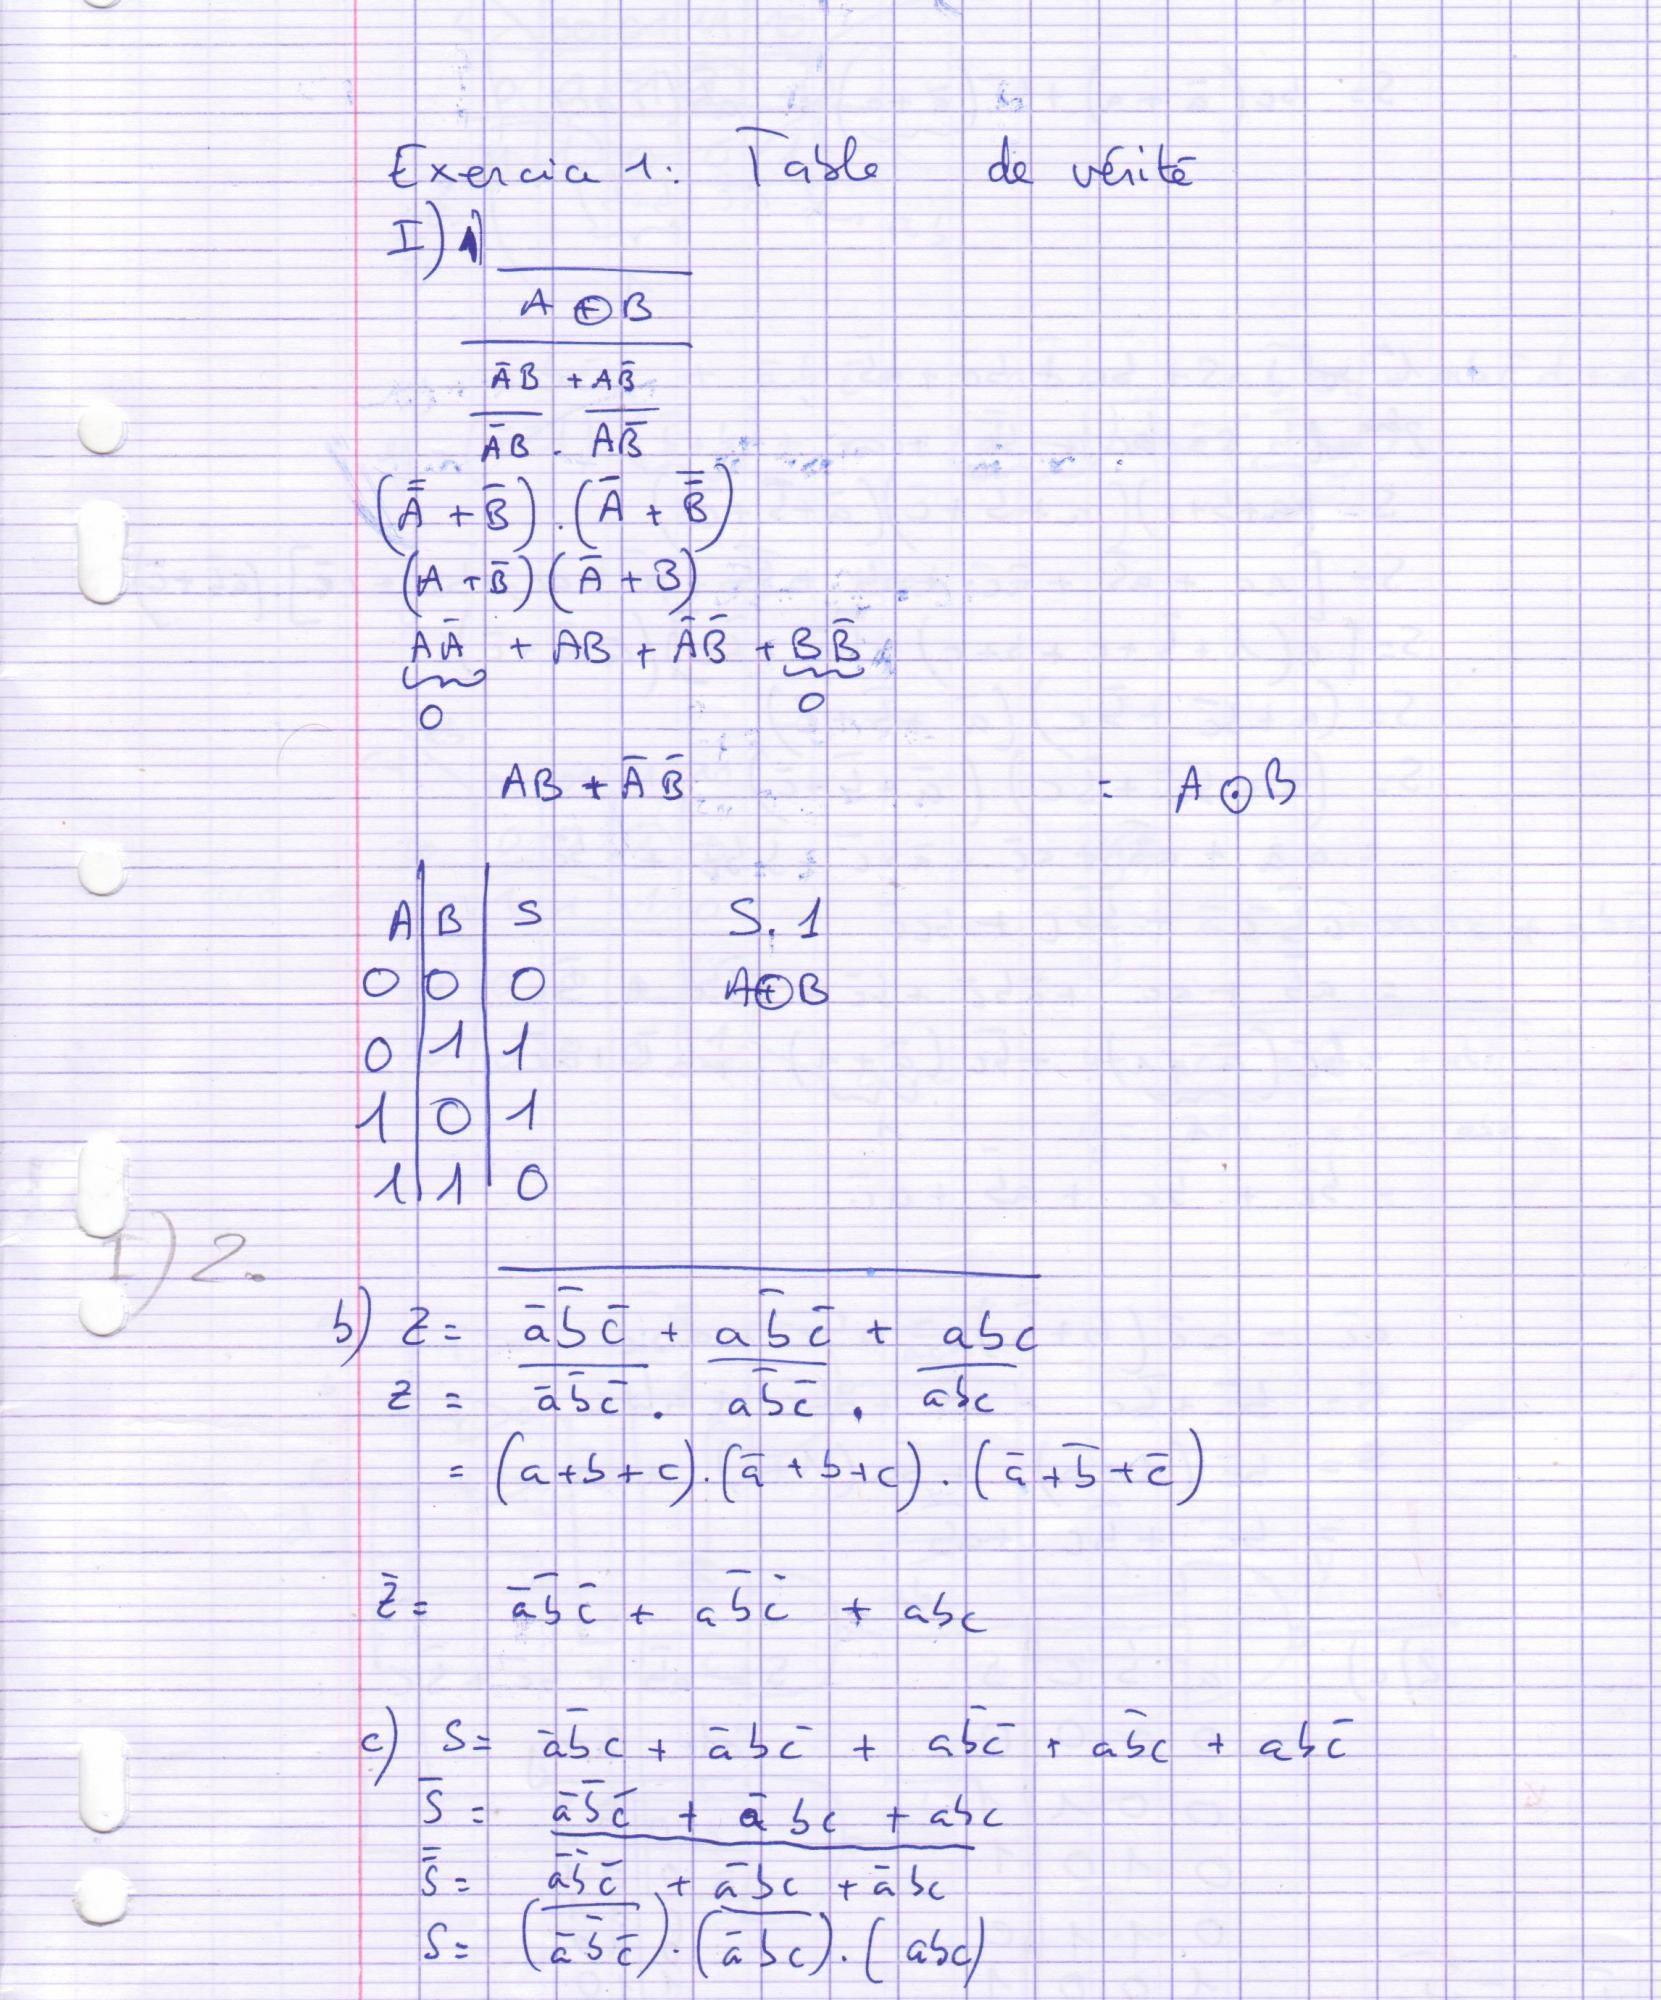 Exercice 1: Table de vérité
I) 1)
$\overline{A \oplus B}$
$\overline{\bar{A}B + A\bar{B}}$
$\overline{\bar{A}B} . \overline{A\bar{B}}$
$(\bar{\bar{A}} + \bar{B}) . (\bar{A} + \bar{\bar{B}})$
$(A + \bar{B}) (\bar{A} + B)$
$A\bar{A} + AB + \bar{A}\bar{B} + B\bar{B}$
0 0
$AB + \bar{A}\bar{B}$ = A ⊙ B
A B S S. 1
0 0 0 A ⊕ B
0 1 1
1 0 1
1 1 0
I) 2.
b) $Z = \overline{\bar{a}\bar{b}\bar{c} + a\bar{b}\bar{c} + abc}$
$Z = \overline{\bar{a}\bar{b}\bar{c}} . \overline{a\bar{b}\bar{c}} . \overline{abc}$
$= (a+b+c).(\bar{a}+b+c).(\bar{a}+\bar{b}+\bar{c})$
$\bar{Z} = \bar{a}\bar{b}\bar{c} + a\bar{b}\bar{c} + abc$
c) $S = \bar{a}\bar{b}c + \bar{a}b\bar{c} + a\bar{b}\bar{c} + a\bar{b}c + ab\bar{c}$
$\bar{S} = \bar{a}\bar{b}\bar{c} + \bar{a}bc + abc$
$\bar{\bar{S}} = \overline{\bar{a}\bar{b}\bar{c} + \bar{a}bc + \bar{a}bc}$
$S = (\overline{\bar{a}\bar{b}\bar{c}}).(\overline{\bar{a}bc}).(abc)$